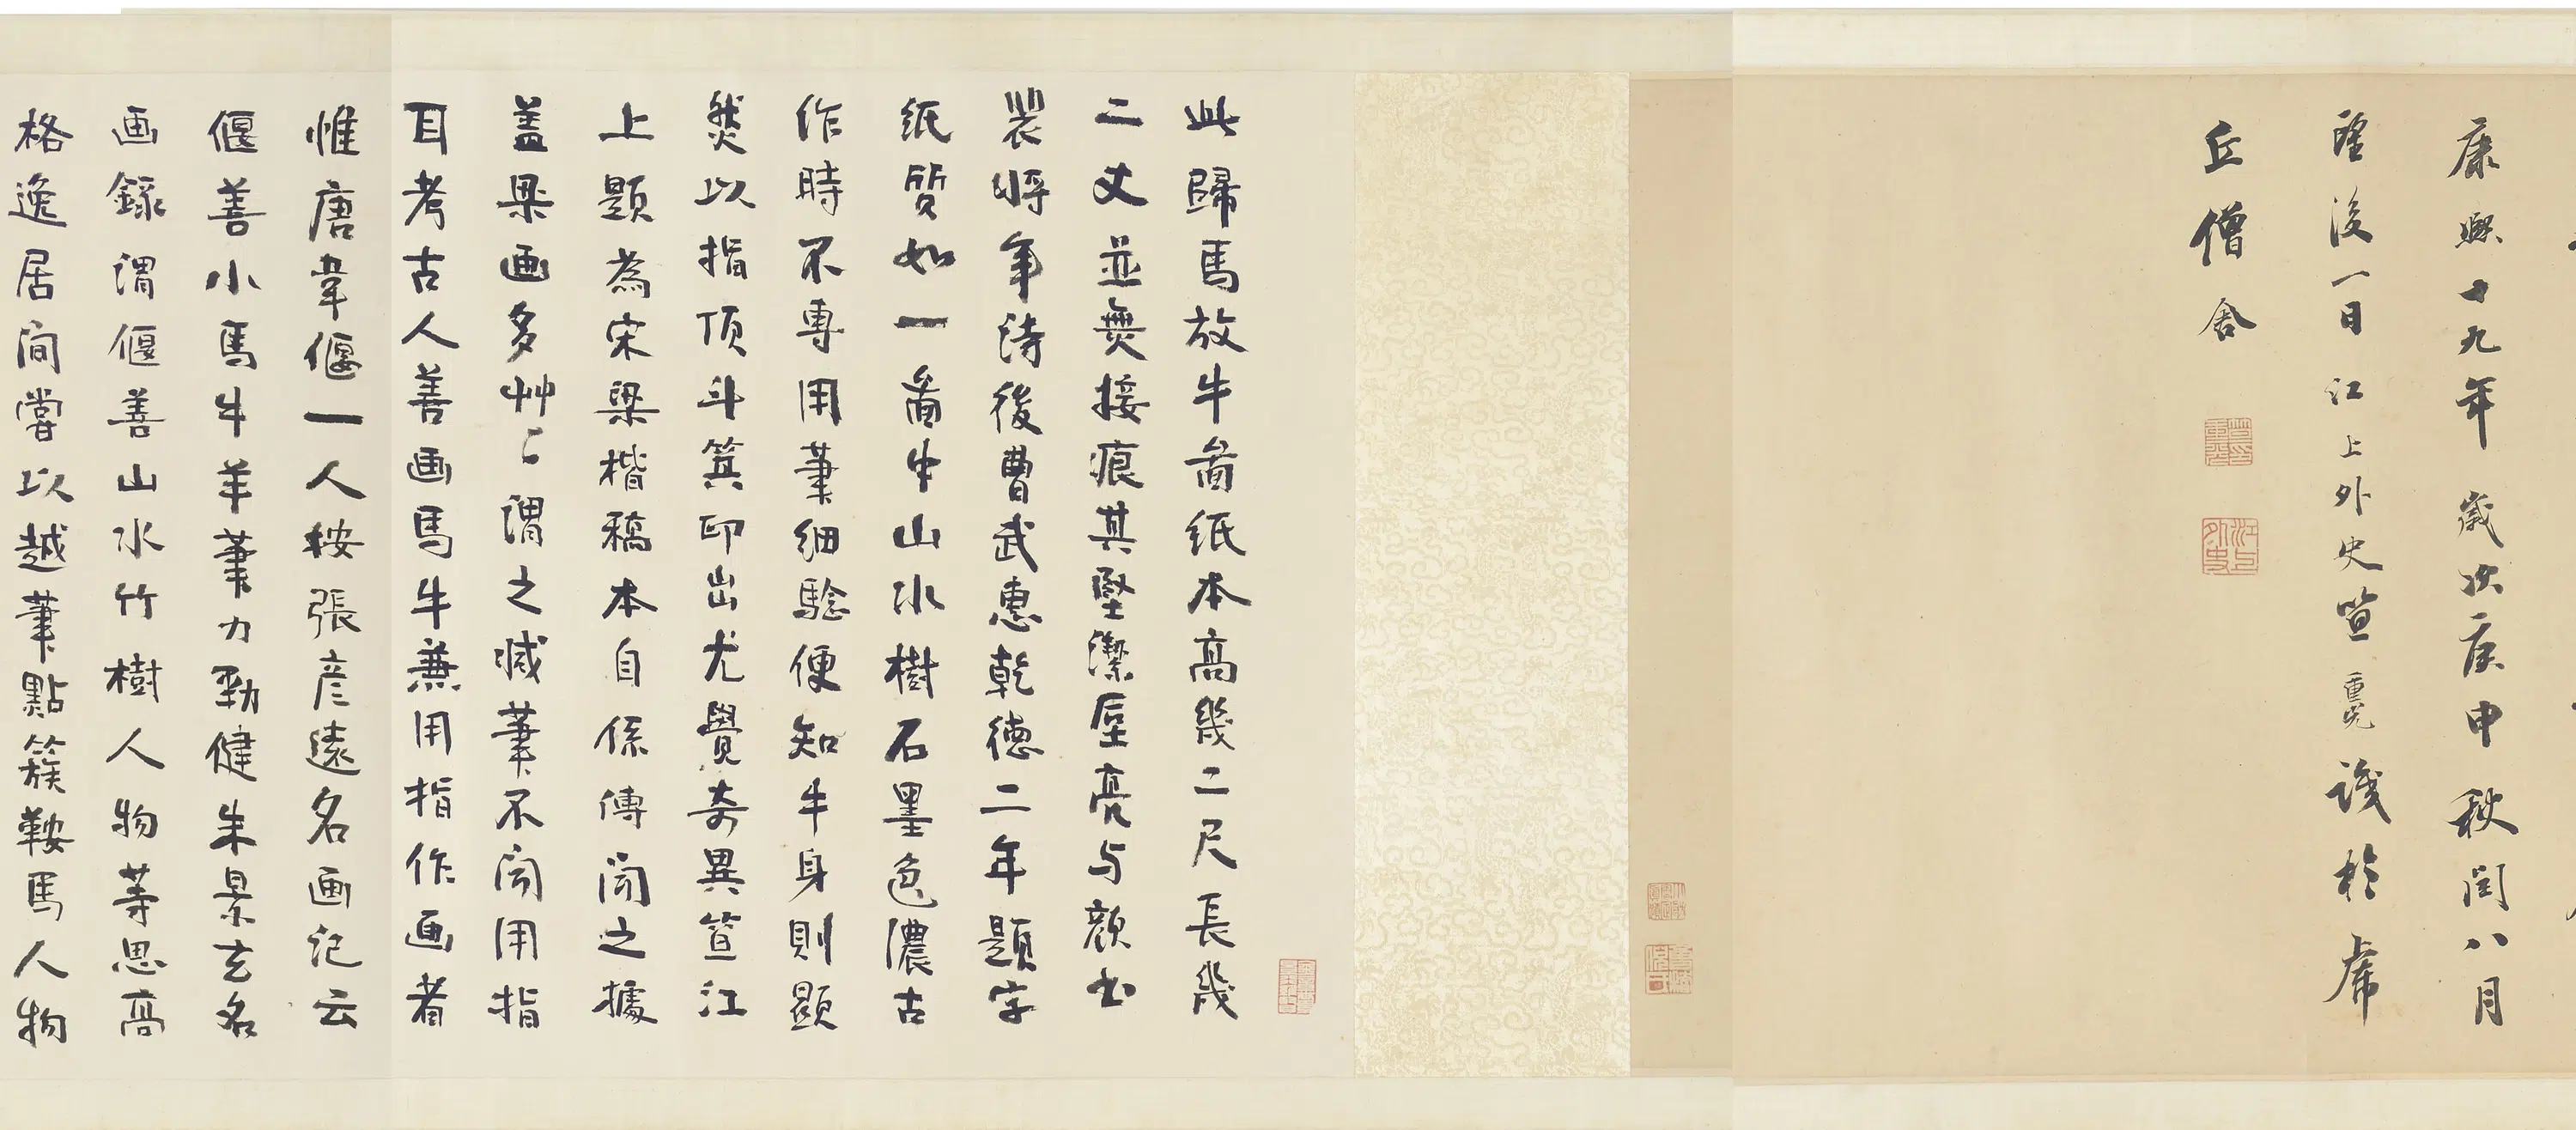 康熙十九年歲次庚申秋閏八月
望後一日江上外史笪重光識於虎
丘僧舍
此歸馬放牛啚紙本高幾二尺長幾
二丈並無接痕其堅潔厚亮与顔書
裴將軍詩後曹武惠乾德二年題字
紙質如一啚中山水樹石墨色濃古
作時不專用筆細驗便知牛身則顯
然以指頂斗箕印出尤覺奇異笪江
上題為宋梁楷稿本自係傳聞之據
蓋梁画多艸〻謂之減筆不聞用指
耳考古人善画馬牛兼用指作画者
惟唐韋偃一人按張彦遠名画記云
偃善小馬牛羊筆力勁健朱景玄名
画錄謂偃善山水竹樹人物等思高
格逸居閒嘗以越筆點簇鞍馬人物